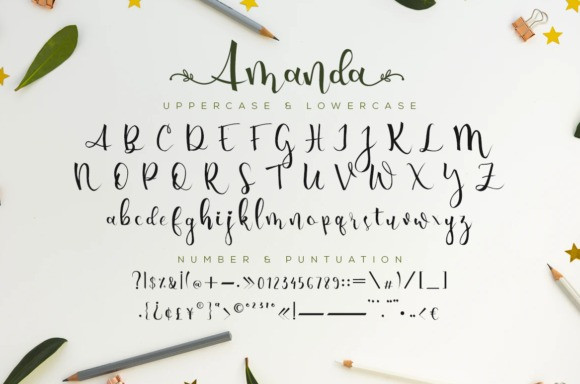 Amanda
UPPERCASE & LOWERCASE
A B C D E F G H I J K L M
N O P Q R S T U V W X Y Z
abcdefghijklmnopqrstuvwxyz
NUMBER & PUNTUATION
?!$%&¡(@+—.»0123456789:=\#)/[_]